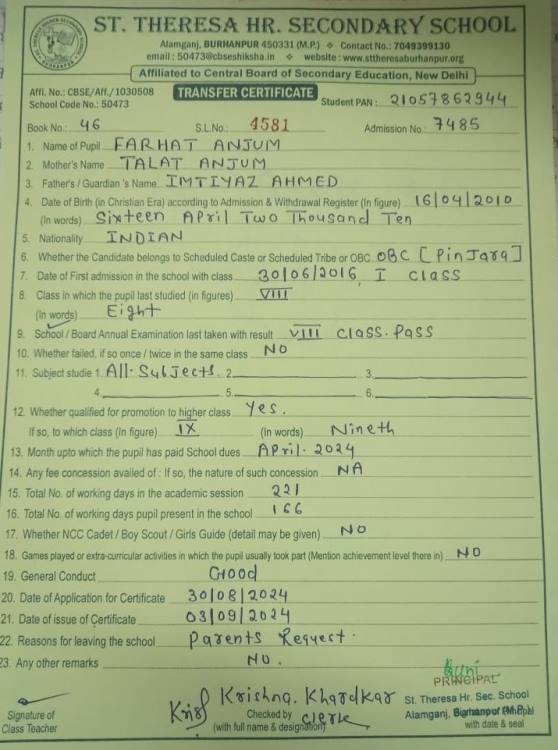 ST. THERESA HR. SECONDARY SCHOOL
Alamganj, BURHANPUR 450331 (M.P.) ❖ Contact No.: 7049399130
email : 50473@cbseshiksha.in ❖ website : www.sttheresaburhanpur.org
Affiliated to Central Board of Secondary Education, New Delhi
Affi. No.: CBSE/Aff./1030508
TRANSFER CERTIFICATE
School Code No.: 50473
Student PAN : 21057862944
Book No.: 46 S.L.No.: 4581 Admission No.: 7485
1. Name of Pupil FARHAT ANJUM
2. Mother's Name TALAT ANJUM
3. Father's / Guardian 's Name IMTIYAZ AHMED
4. Date of Birth (in Christian Era) according to Admission & Withdrawal Register (In figure) 16/04/2010
(In words) Sixteen April Two Thousand Ten
5. Nationality INDIAN
6. Whether the Candidate belongs to Scheduled Caste or Scheduled Tribe or OBC OBC [Pinjara]
7. Date of First admission in the school with class 30/06/2016, I class
8. Class in which the pupil last studied (in figures) VIII
(In words) Eight
9. School / Board Annual Examination last taken with result VIII class. Pass
10. Whether failed, if so once / twice in the same class NO
11. Subject studie 1. All-Subjects. 2. 3.
4. 5. 6.
12. Whether qualified for promotion to higher class Yes.
If so, to which class (In figure) IX (In words) Nineth
13. Month upto which the pupil has paid School dues April-2024
14. Any fee concession availed of : If so, the nature of such concession NA
15. Total No. of working days in the academic session 221
16. Total No. of working days pupil present in the school 166
17. Whether NCC Cadet / Boy Scout / Girls Guide (detail may be given) NO
18. Games played or extra-curricular activities in which the pupil usually took part (Mention achievement level there in) NO
19. General Conduct Good
20. Date of Application for Certificate 30/08/2024
21. Date of issue of Certificate 03/09/2024
22. Reasons for leaving the school Parents Request.
23. Any other remarks NO.
PRINCIPAL
Krishna. Khardkar
St. Theresa Hr. Sec. School
Signature of
Class Teacher
Checked by clerk
(with full name & designation)
Alamganj, Burhanpur (M.P.)
Principal
with date & seal